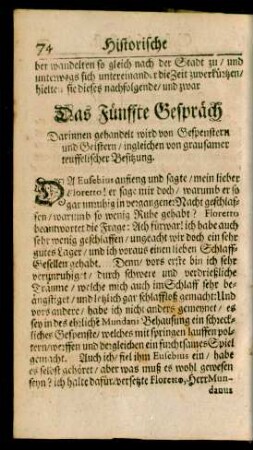 74 Historische
ber wandelten so gleich nach der Stadt zu/ und
unterwegs sich untereinander die Zeit zuverkürtzen/
hielten sie dieses nachfolgende/ und zwar
Das Fünffte Gespräch
Darinnen gehandelt wird von Gespenstern
und Geistern/ ingleichen von grausamer
teuffelischer Besitzung.
DA Eusebius anfieng und sagte/ mein lieber
Floretto! er sage mir doch/ warumb er so
gar unruhig in vergangener Nacht geschlaf-
fen/ warumb so wenig Ruhe gehabt? Floretto
beantwortet die Frage: Ach fürwar! ich habe auch
sehr wenig geschlaffen/ ungeacht wir doch ein sehr
gutes Läger/ und ich voraus einen lieben Schlaff-
Gesellen gehabt. Denn vors erste bin ich sehr
verunruhiget/ durch schwere und verdrießliche
Träume/ welche mich auch im Schlaff sehr be-
ängstiget/ und letzlich gar schlaffloß gemacht: Und
vors andere/ habe ich nicht anders gemeynet/ es
sey in des ehrliche Mundani Behausung ein schreck-
liches Gespenste/ welches mit springen lauffen pol-
tern/ werffen und dergleichen ein furchtsames Spiel
gemacht. Auch ich/ fiel ihm Eusebius ein/ habe
es selbst gehöret/ aber was muß es wohl gewesen
seyn? ich halte dafür/ versetzte Floretto, Herr Mun-
danus